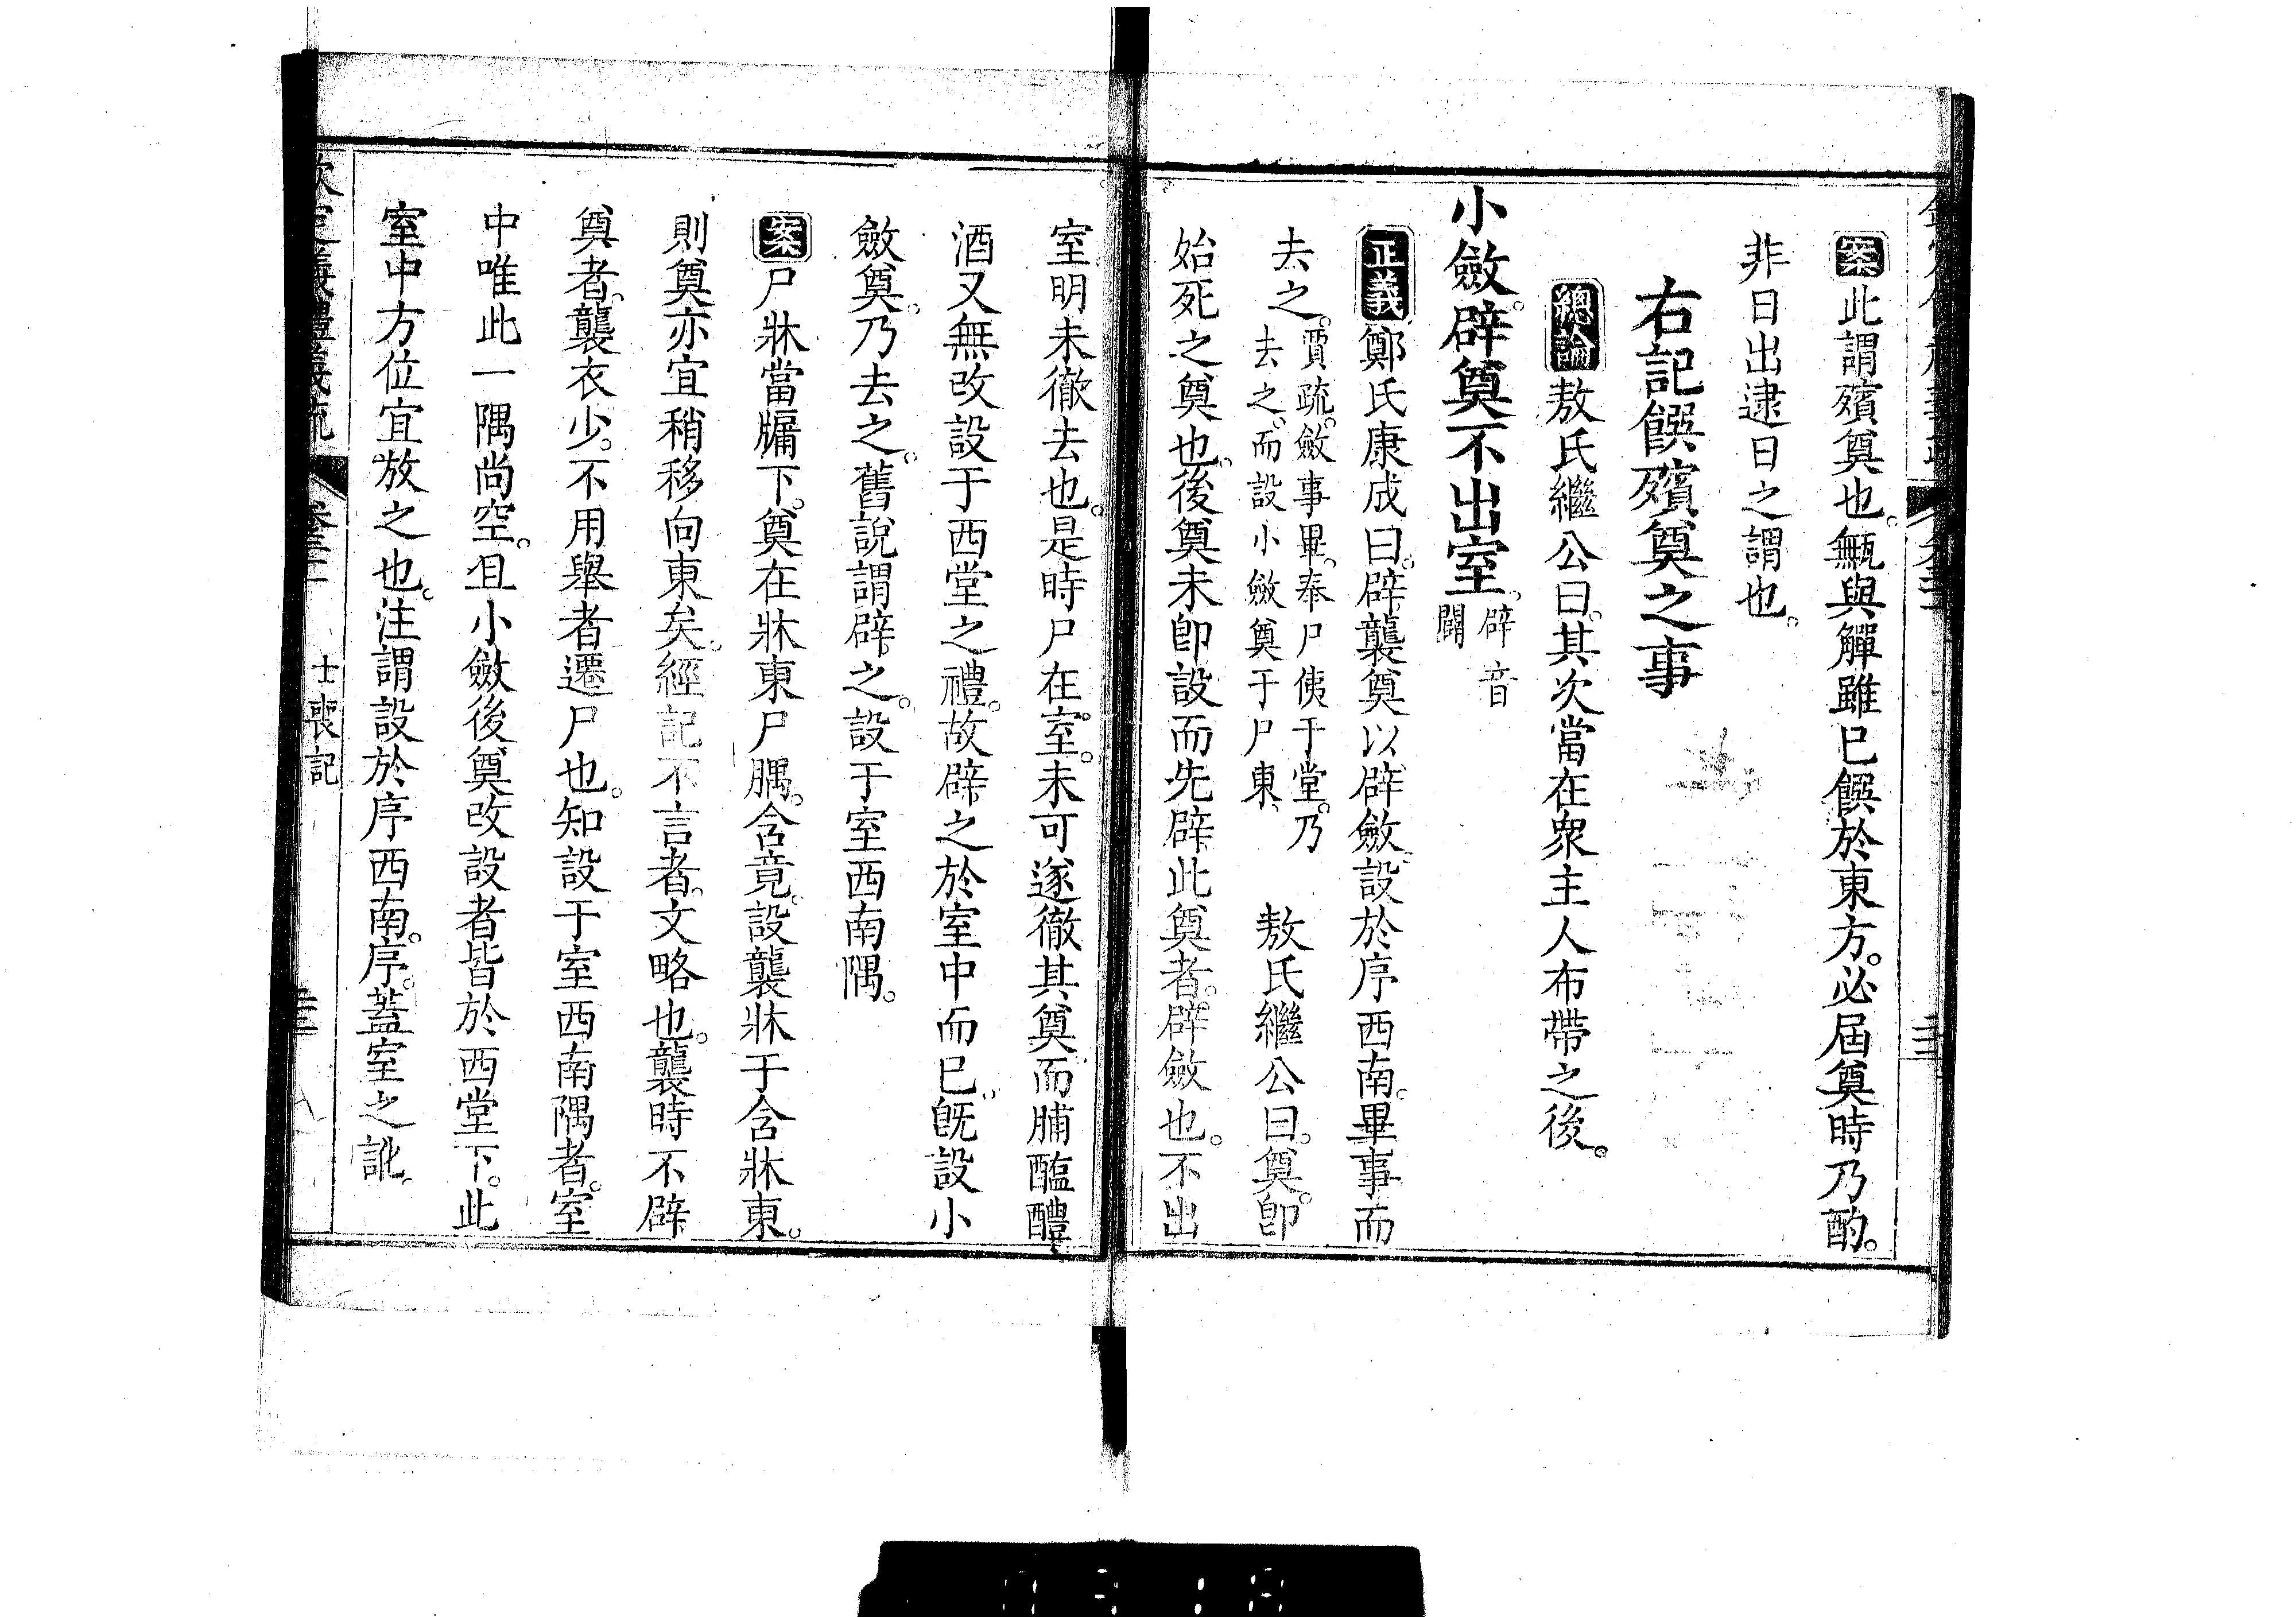 案此謂殯奠也。甒與觶雖已饌於東方。必屆奠時乃酌。
非日出逮日之謂也。
右記饌殯奠之事
總論敖氏繼公曰。其次當在眾主人布帶之後。
小斂。辟奠不出室。辟音闢
正義鄭氏康成曰。辟襲奠以辟斂。設於序西南。畢事而
去之。賈疏。斂事畢。奉尸侇于堂。乃去之。而設小斂奠于尸東、 敖氏繼公曰。奠。卽
始死之奠也。後奠未卽設而先辟此奠者。辟斂也。不出
室明未徹去也。是時尸在室。未可遂徹其奠而脯醢醴
酒又無改設于西堂之禮。故辟之於室中而已。旣設小
斂奠。乃去之。舊說謂辟之。設于室西南隅。
案尸牀當牖下。奠在牀東尸腢。含竟。設襲牀于含牀東。
則奠亦宜稍移向東矣。經記不言者。文略也。襲時不辟
奠者。襲衣少。不用舉者遷尸也。知設于室西南隅者。室
中唯此一隅尚空。且小斂後奠改設者皆於西堂下。此
室中方位宜放之也。注謂設於序西南。序。蓋室之訛。
士喪記